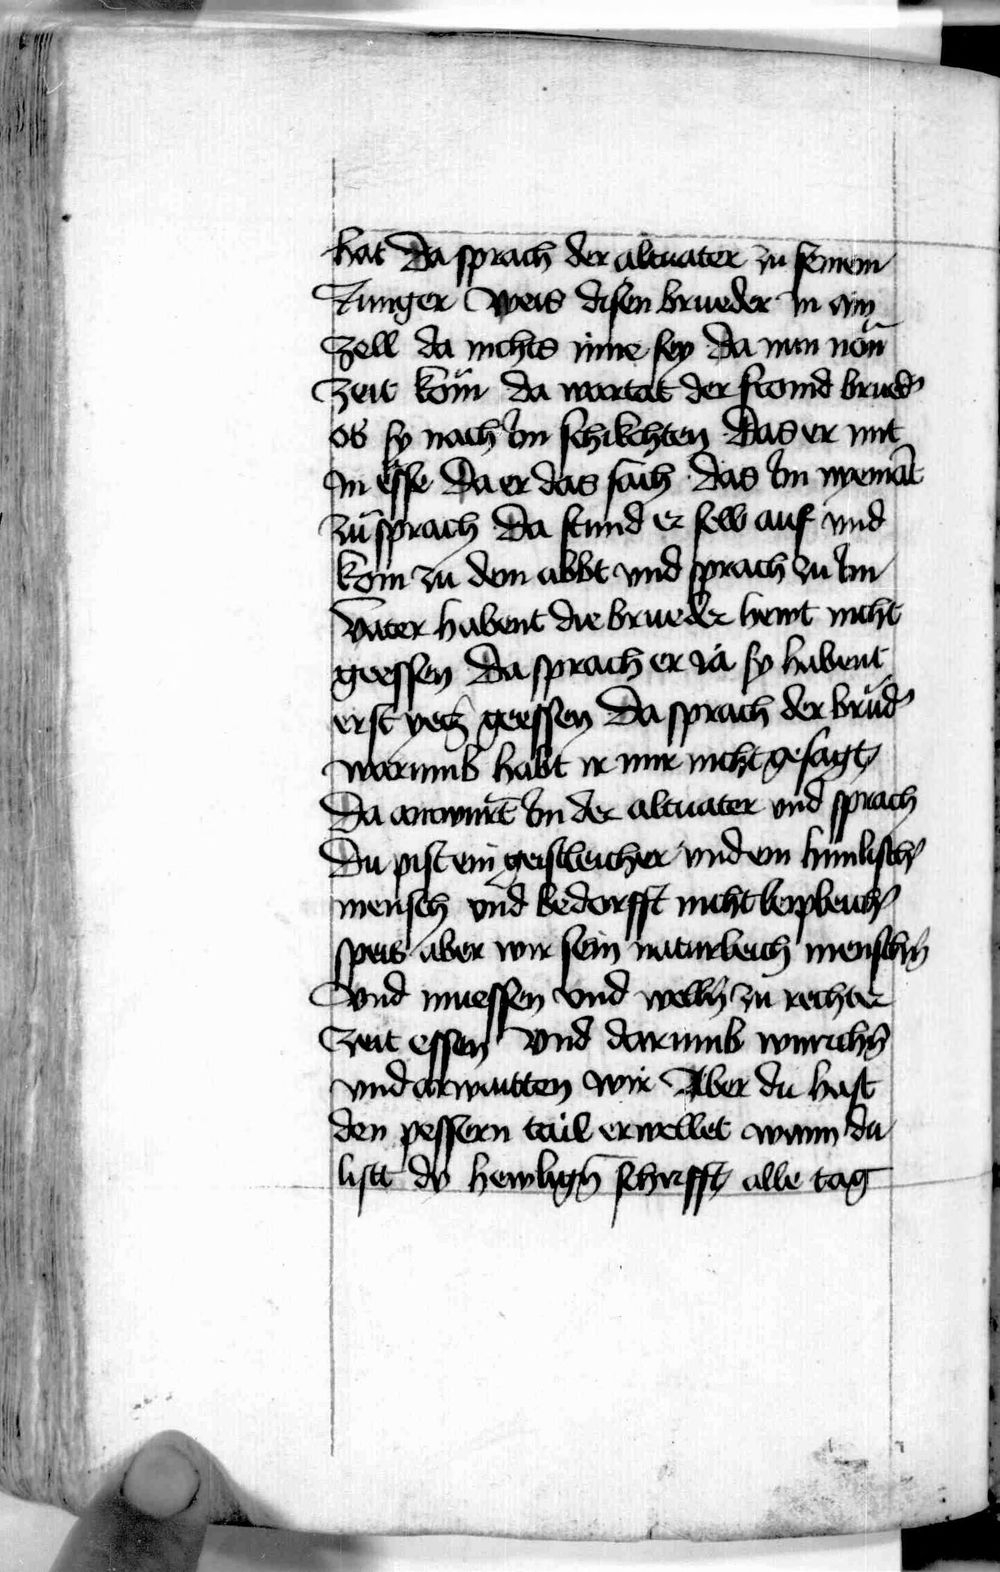 hat Da sprach der altuater zu seinem
Junger Weis disen brueder in ain
zell da nichts inne sey Da nun nön
Zeit köm da wartat der fromd brued᾽
ob sy nach Im schikchten Das er mit
In ësse Da er das sach das Im nyemāt
zu sprach Da stund er selb auf vnd
kom zu dem abbt vnd sprach zu Im
Vater habent die brueder hewt nicht
geessen Da sprach er ia sy habent
erst yecz geessen Da sprach der brůd᾽
warumb habt ir mir nicht gesagt
Da antwurt̄ Im der altuater vnd sprach
Du pist ein geistleicher vnd ein himlisch᾽
mensch vnd bedarfft nicht leipleich᾽
speis aber wir sein naturleich mensch̄n
vnd muessen vnd well̄n zu rechter
Zeit essen vnd darumb wurich̄n
vnd arwaitten wir Aber du hast
den pessern tail erwellet wann du
list dy heylign̄ schrifft alle tag